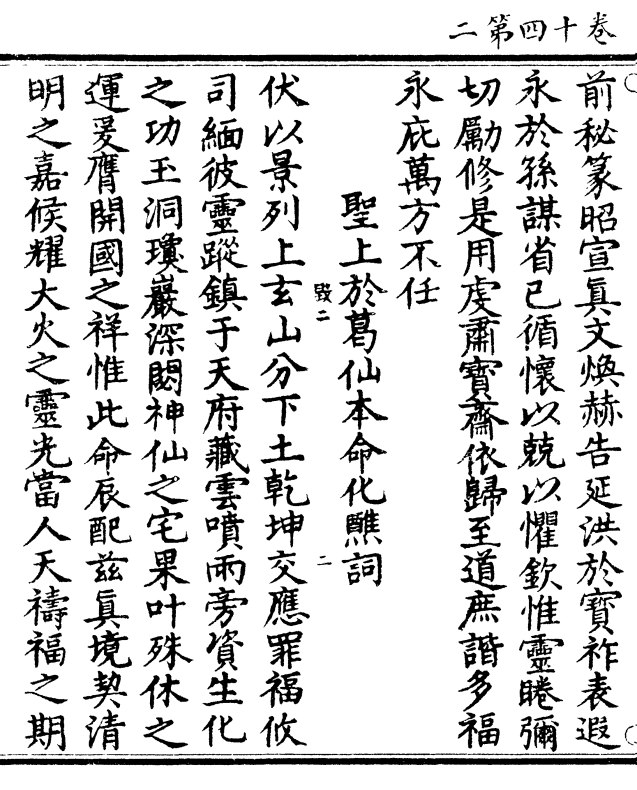 二第四十卷
前秘篆昭宣眞文煥赫告延洪於寳祚表遐
永於孫謀省已循懷以兢以懼欽惟靈睠彌
切勵修是用虔肅寳齋依歸至道庶諧多福
永庇萬方不任
聖上於葛仙本命化醮詞
毀二
二
伏以景列上玄山分下土乾坤交應罪福攸
司緬彼靈蹤鎮于天府藏雲噴雨旁資生化
之功玉洞瓊巖深閟神仙之宅果叶殊休之
運爰膺開國之祥惟此命辰配兹眞境契清
明之嘉候耀大火之靈光當人天禱福之期